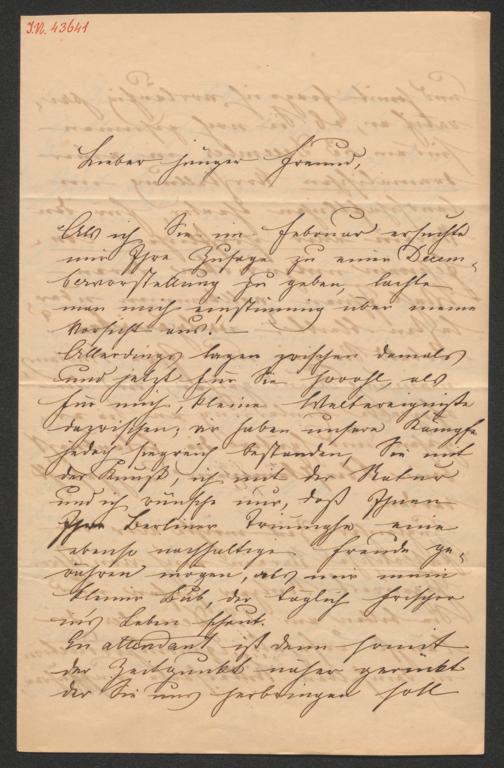 J.N. 43641
Lieber junger Freund,
Als ich Sie im Februar ersuchte
mir Ihre Zusage zu einer Decem-
bervorstellung zu geben, lachte
man mich einstimmig über meine
Vorsicht aus! —
Allerdings lagen zwischen damals
und jetzt für Sie sowohl, als
für mich, kleine Weltereigniße
dazwischen; wir haben unsere Kämpfe
jedoch siegreich bestanden, Sie mit
der Kunst, ich mit der Natur
und ich wünsche nur, daß Ihnen
Ihre Berliner Triumphe eine
ebenso nachhaltige Freude ge-
währen mögen, als mir mein
kleiner Bub, der täglich frischer
ins Leben schaut.
En attendant ist denn somit
der Zeitpunkt näher gerückt
der Sie uns herbringen soll